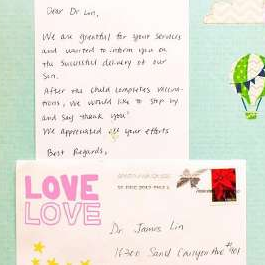 Dear Dr. Lin,
We are grateful for your services
and wanted to inform you on
the successful delivery of our
son.
After the child completes vaccina-
tions, we would like to stop by
and say thank you!
We appreciated all your efforts
Best Regards,
LOVE
LOVE
Dr. James Lin
Sand Canyon Ave #401